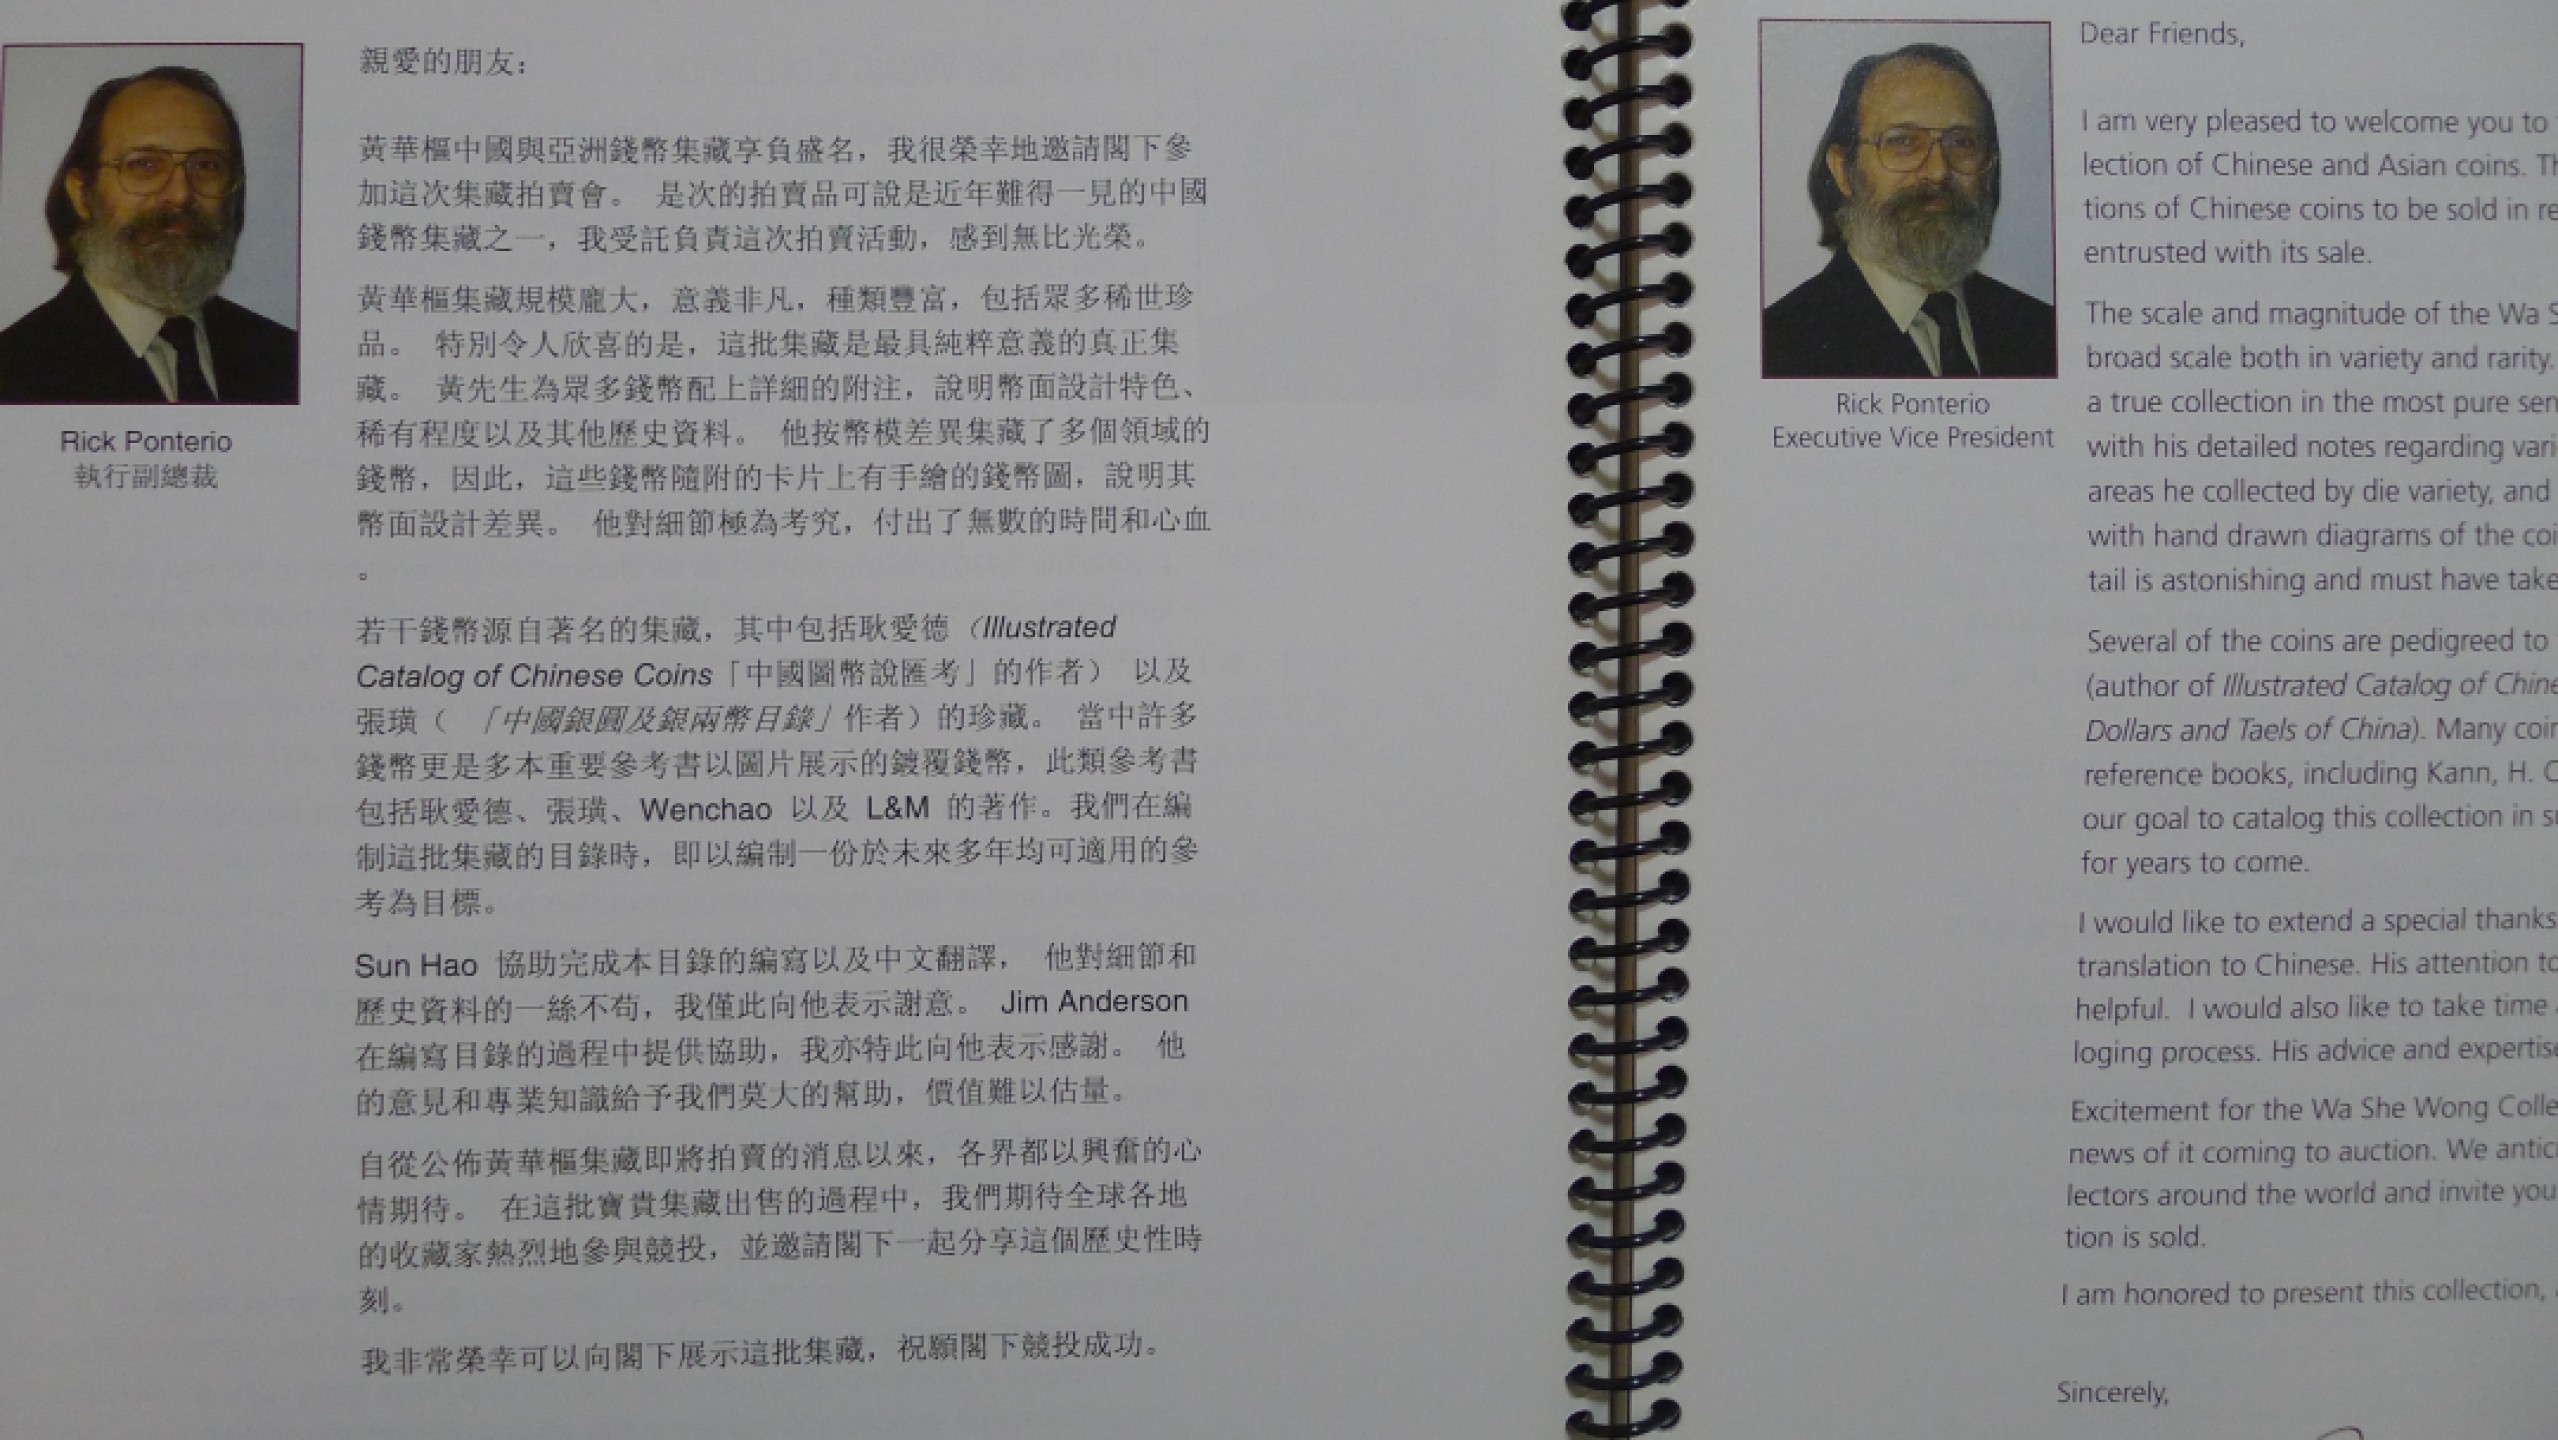 親愛的朋友:
黃華樞中國與亞洲錢幣集藏享負盛名，我很榮幸地邀請閣下參
加這次集藏拍賣會。 是次的拍賣品可說是近年難得一見的中國
錢幣集藏之一，我受託負責這次拍賣活動，感到無比光榮。
黃華樞集藏規模龐大，意義非凡，種類豐富，包括眾多稀世珍
品。 特別令人欣喜的是，這批集藏是最具純粹意義的真正集
藏。 黃先生為眾多錢幣配上詳細的附注，說明幣面設計特色、
稀有程度以及其他歷史資料。 他按幣模差異集藏了多個領域的
錢幣，因此，這些錢幣隨附的卡片上有手繪的錢幣圖，說明其
幣面設計差異。 他對細節極為考究，付出了無數的時間和心血
。
若干錢幣源自著名的集藏，其中包括耿愛德（Illustrated
Catalog of Chinese Coins「中國圖幣說匯考」的作者） 以及
張璜（ 「中國銀圓及銀兩幣目錄」作者）的珍藏。 當中許多
錢幣更是多本重要參考書以圖片展示的鍍覆錢幣，此類參考書
包括耿愛德、張璜、Wenchao 以及 L&M 的著作。我們在編
制這批集藏的目錄時，即以編制一份於未來多年均可適用的參
考為目標。
Sun Hao 協助完成本目錄的編寫以及中文翻譯， 他對細節和
歷史資料的一絲不苟，我僅此向他表示謝意。 Jim Anderson
在編寫目錄的過程中提供協助，我亦特此向他表示感謝。 他
的意見和專業知識給予我們莫大的幫助，價值難以估量。
自從公佈黃華樞集藏即將拍賣的消息以來，各界都以興奮的心
情期待。 在這批寶貴集藏出售的過程中，我們期待全球各地
的收藏家熱烈地參與競投，並邀請閣下一起分享這個歷史性時
刻。
我非常榮幸可以向閣下展示這批集藏，祝願閣下競投成功。
Rick Ponterio
執行副總裁
Rick Ponterio
Executive Vice President
Dear Friends,
I am very pleased to welcome you to
lection of Chinese and Asian coins.
tions of Chinese coins to be sold in
entrusted with its sale.
The scale and magnitude of the Wa
broad scale both in variety and rarity.
a true collection in the most pure
with his detailed notes regarding
areas he collected by die variety, and
with hand drawn diagrams of the
tail is astonishing and must have
Several of the coins are pedigreed to
(author of Illustrated Catalog of
Dollars and Taels of China). Many
reference books, including Kann, H.
our goal to catalog this collection in
for years to come.
I would like to extend a special thanks
translation to Chinese. His attention
helpful. I would also like to take time
loging process. His advice and
Excitement for the Wa She Wong
news of it coming to auction. We
lectors around the world and invite you
tion is sold.
I am honored to present this collection,
Sincerely,